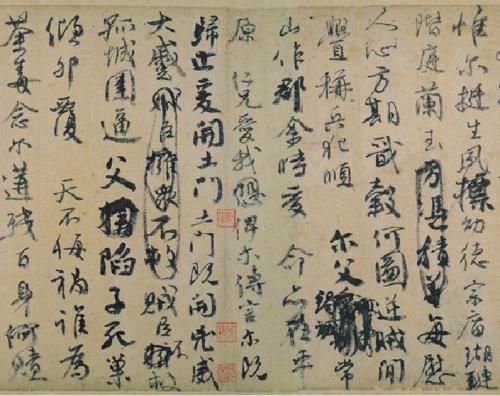 惟尔挺生夙標幼德宗廟瑚璉
階庭蘭玉方憑積善每慰
人心方期戩穀何圖逆賊間
釁稱兵犯順尔父竭誠常
山作郡余時受命亦在平
原仁兄愛我恐俾尔傳言尔既
歸止爰開土門土門既開凶威
大蹙賊臣擁衆不救賊臣不擁救
孤城圍逼父擒陷子死巢
傾卵覆天不悔禍誰為
荼毒念尔遘殘百身何贖